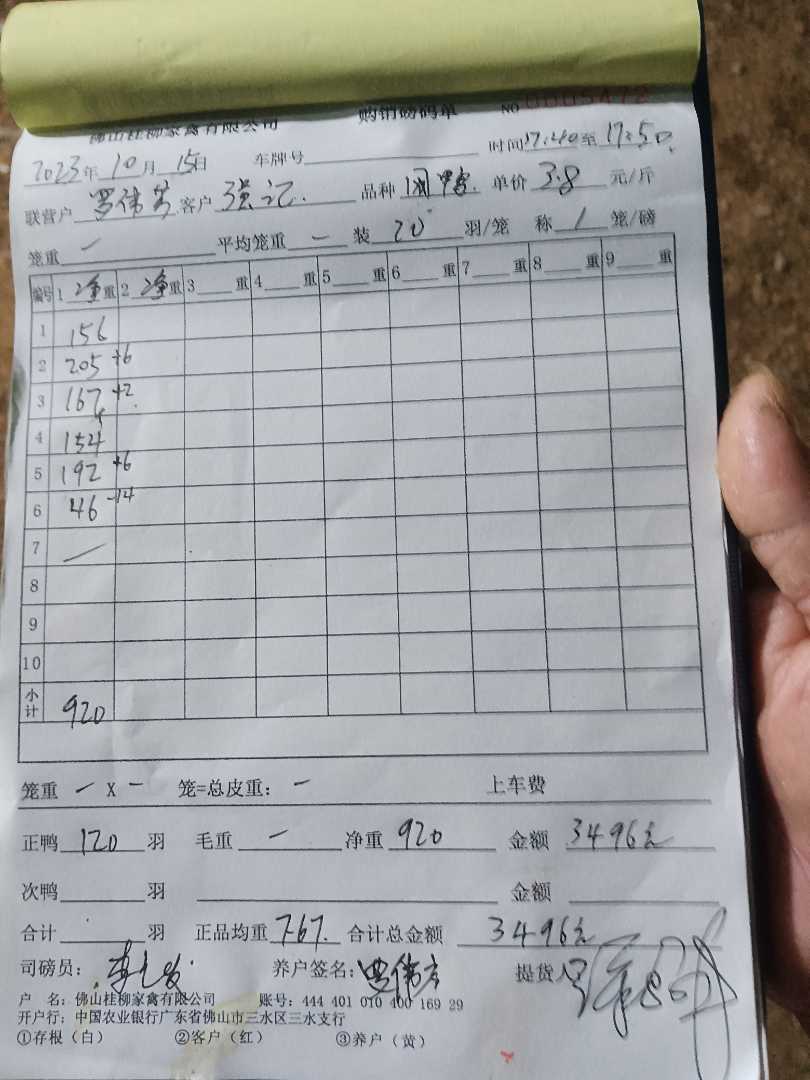 佛山桂柳家禽有限公司 购销磅码单 NO 0005472
2023年10月15日 车牌号 时间17:40至17:50
联营户 客户 强记 品种 单价 3.8 元/斤
笼重 一 平均笼重 一 装 20 羽/笼 称 1 笼/磅
编号 1 净重 2 净重 3 重 4 重 5 重 6 重 7 重 8 重 9 重
1 156
2 205 +6
3 167 +2
4 154
5 192 +6
6 46 -14
7 一
8
9
10
小计 920
笼重 一 X 一 笼=总皮重: 一 上车费
正鸭 120 羽 毛重 一 净重 920 金额 3496元
次鸭 羽 金额
合计 羽 正品均重 7.67 合计总金额 3496元
司磅员: 养户签名: 提货人
户 名: 佛山桂柳家禽有限公司 账号: 444 401 010 400 169 29
开户行: 中国农业银行广东省佛山市三水区三水支行
①存根(白) ②客户(红) ③养户(黄)